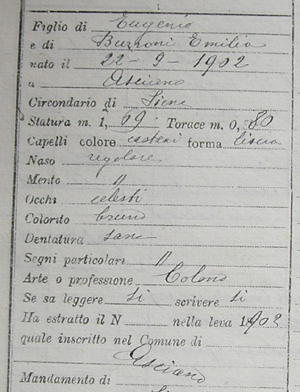 Figlio di Eugenio
e di Buzzoni Emilia
nato il 22-9-1902
a Asciano
Circondario di Siena
Statura m. 1,69 Torace m. 0,80
Capelli colore castani forma liscia
Naso regolare
Mento "
Occhi celesti
Colorito bruno
Dentatura sana
Segni particolari "
Arte o professione Colono
Se sa leggere si scrivere si
Ha estratto il N nella leva 1902
quale inscritto nel Comune di
Asciano
Mandamento di